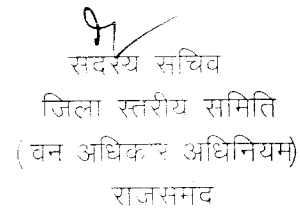 सदस्य सचिव
जिला स्तरीय समिति
(वन अधिकार अधिनियम)
राजसमंद